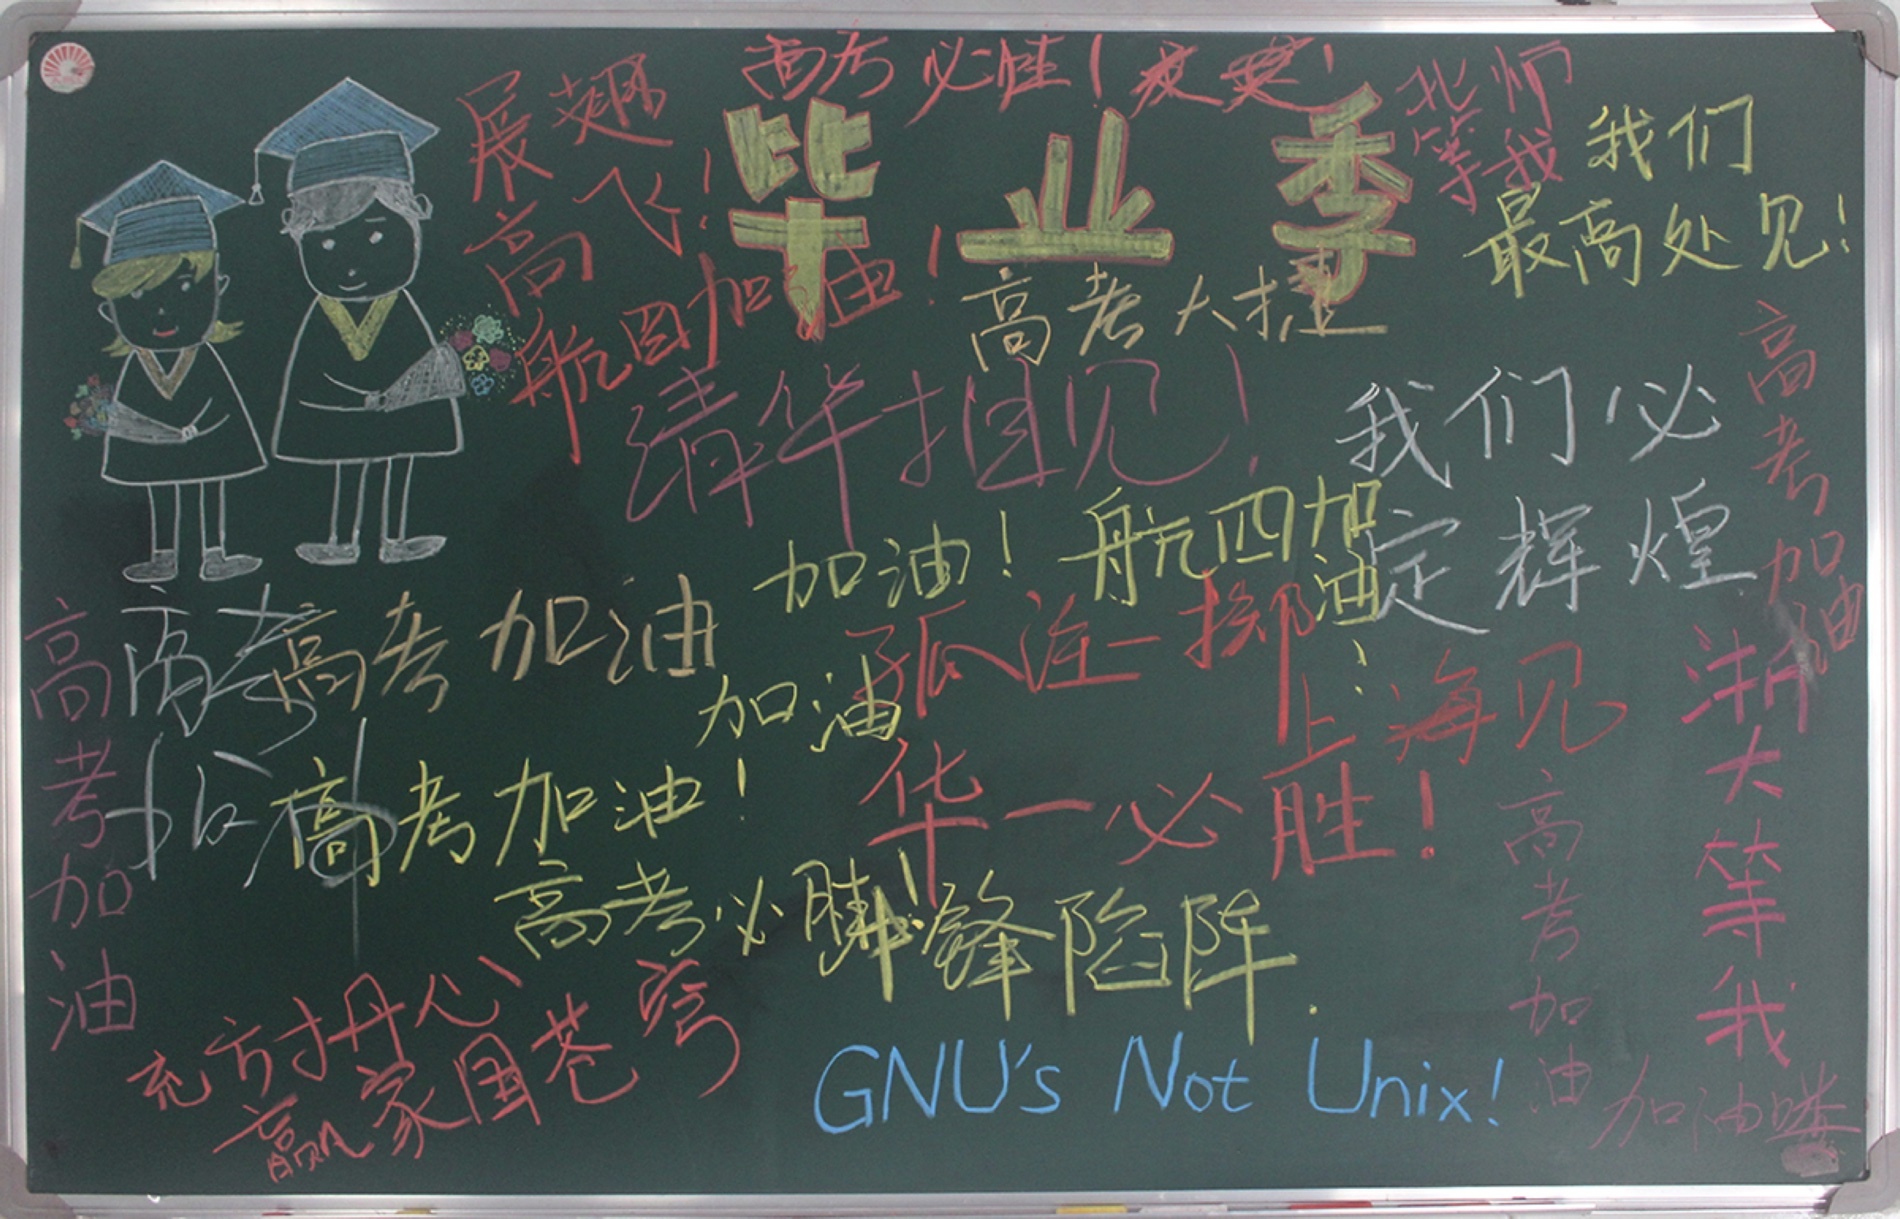 高考必胜！
毕业季
展翅
高飞！
北师
等我
我们
最高处见！
航四加油！
高考大捷
清华相见！
我们必
定辉煌
高考加油
加油！航四加油
孤注一掷
高考
高考加油
高考加油
加油
上海见
浙大等我
高考加油！
华一必胜！
高考加油
高考必胜！
锋陷阵
丹心
赢家国苍穹
GNU's Not Unix!
加油喽